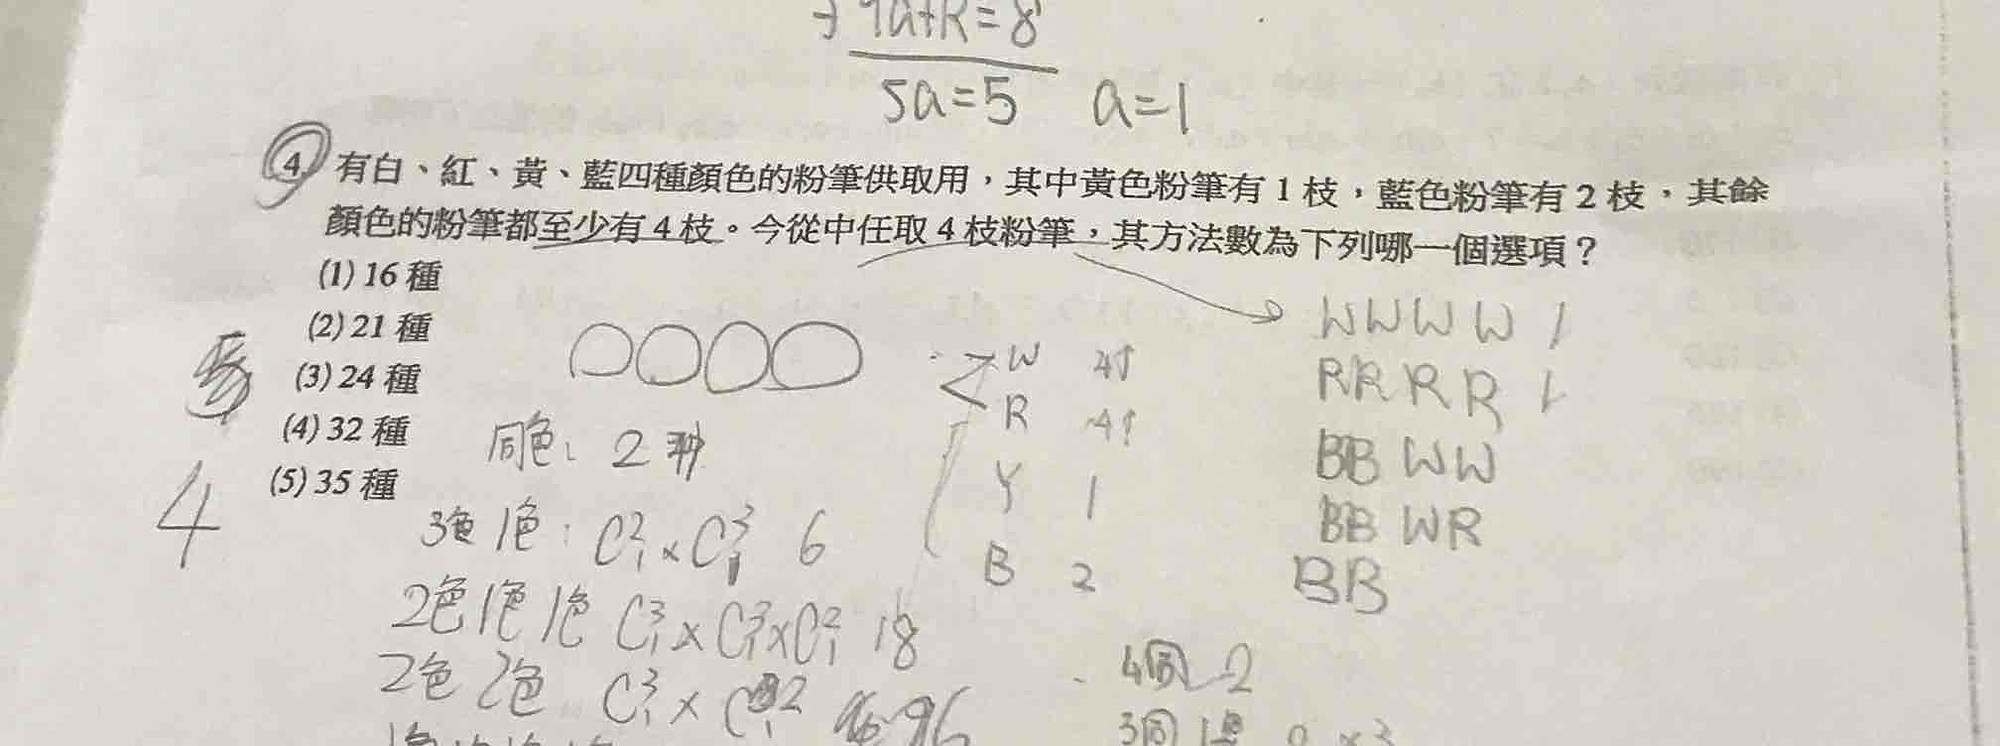 5a=5 a=1
4. 有白、紅、黃、藍四種顏色的粉筆供取用，其中黃色粉筆有 1 枝，藍色粉筆有 2 枝，其餘
顏色的粉筆都至少有 4 枝。今從中任取 4 枝粉筆，其方法數為下列哪一個選項？
(1) 16 種
(2) 21 種
(3) 24 種
(4) 32 種
(5) 35 種
4
同色: 2 種
3色 1色: C²₁×C³₁ 6
2色 1色 1色 C³₁×C³₁×C²₁ 18
2色 2色 C³₁×
W 4↑
R 4↑
Y 1
B 2
WWWW 1
RRRR 1
BB WW
BB WR
BB
4同 2
3同 1